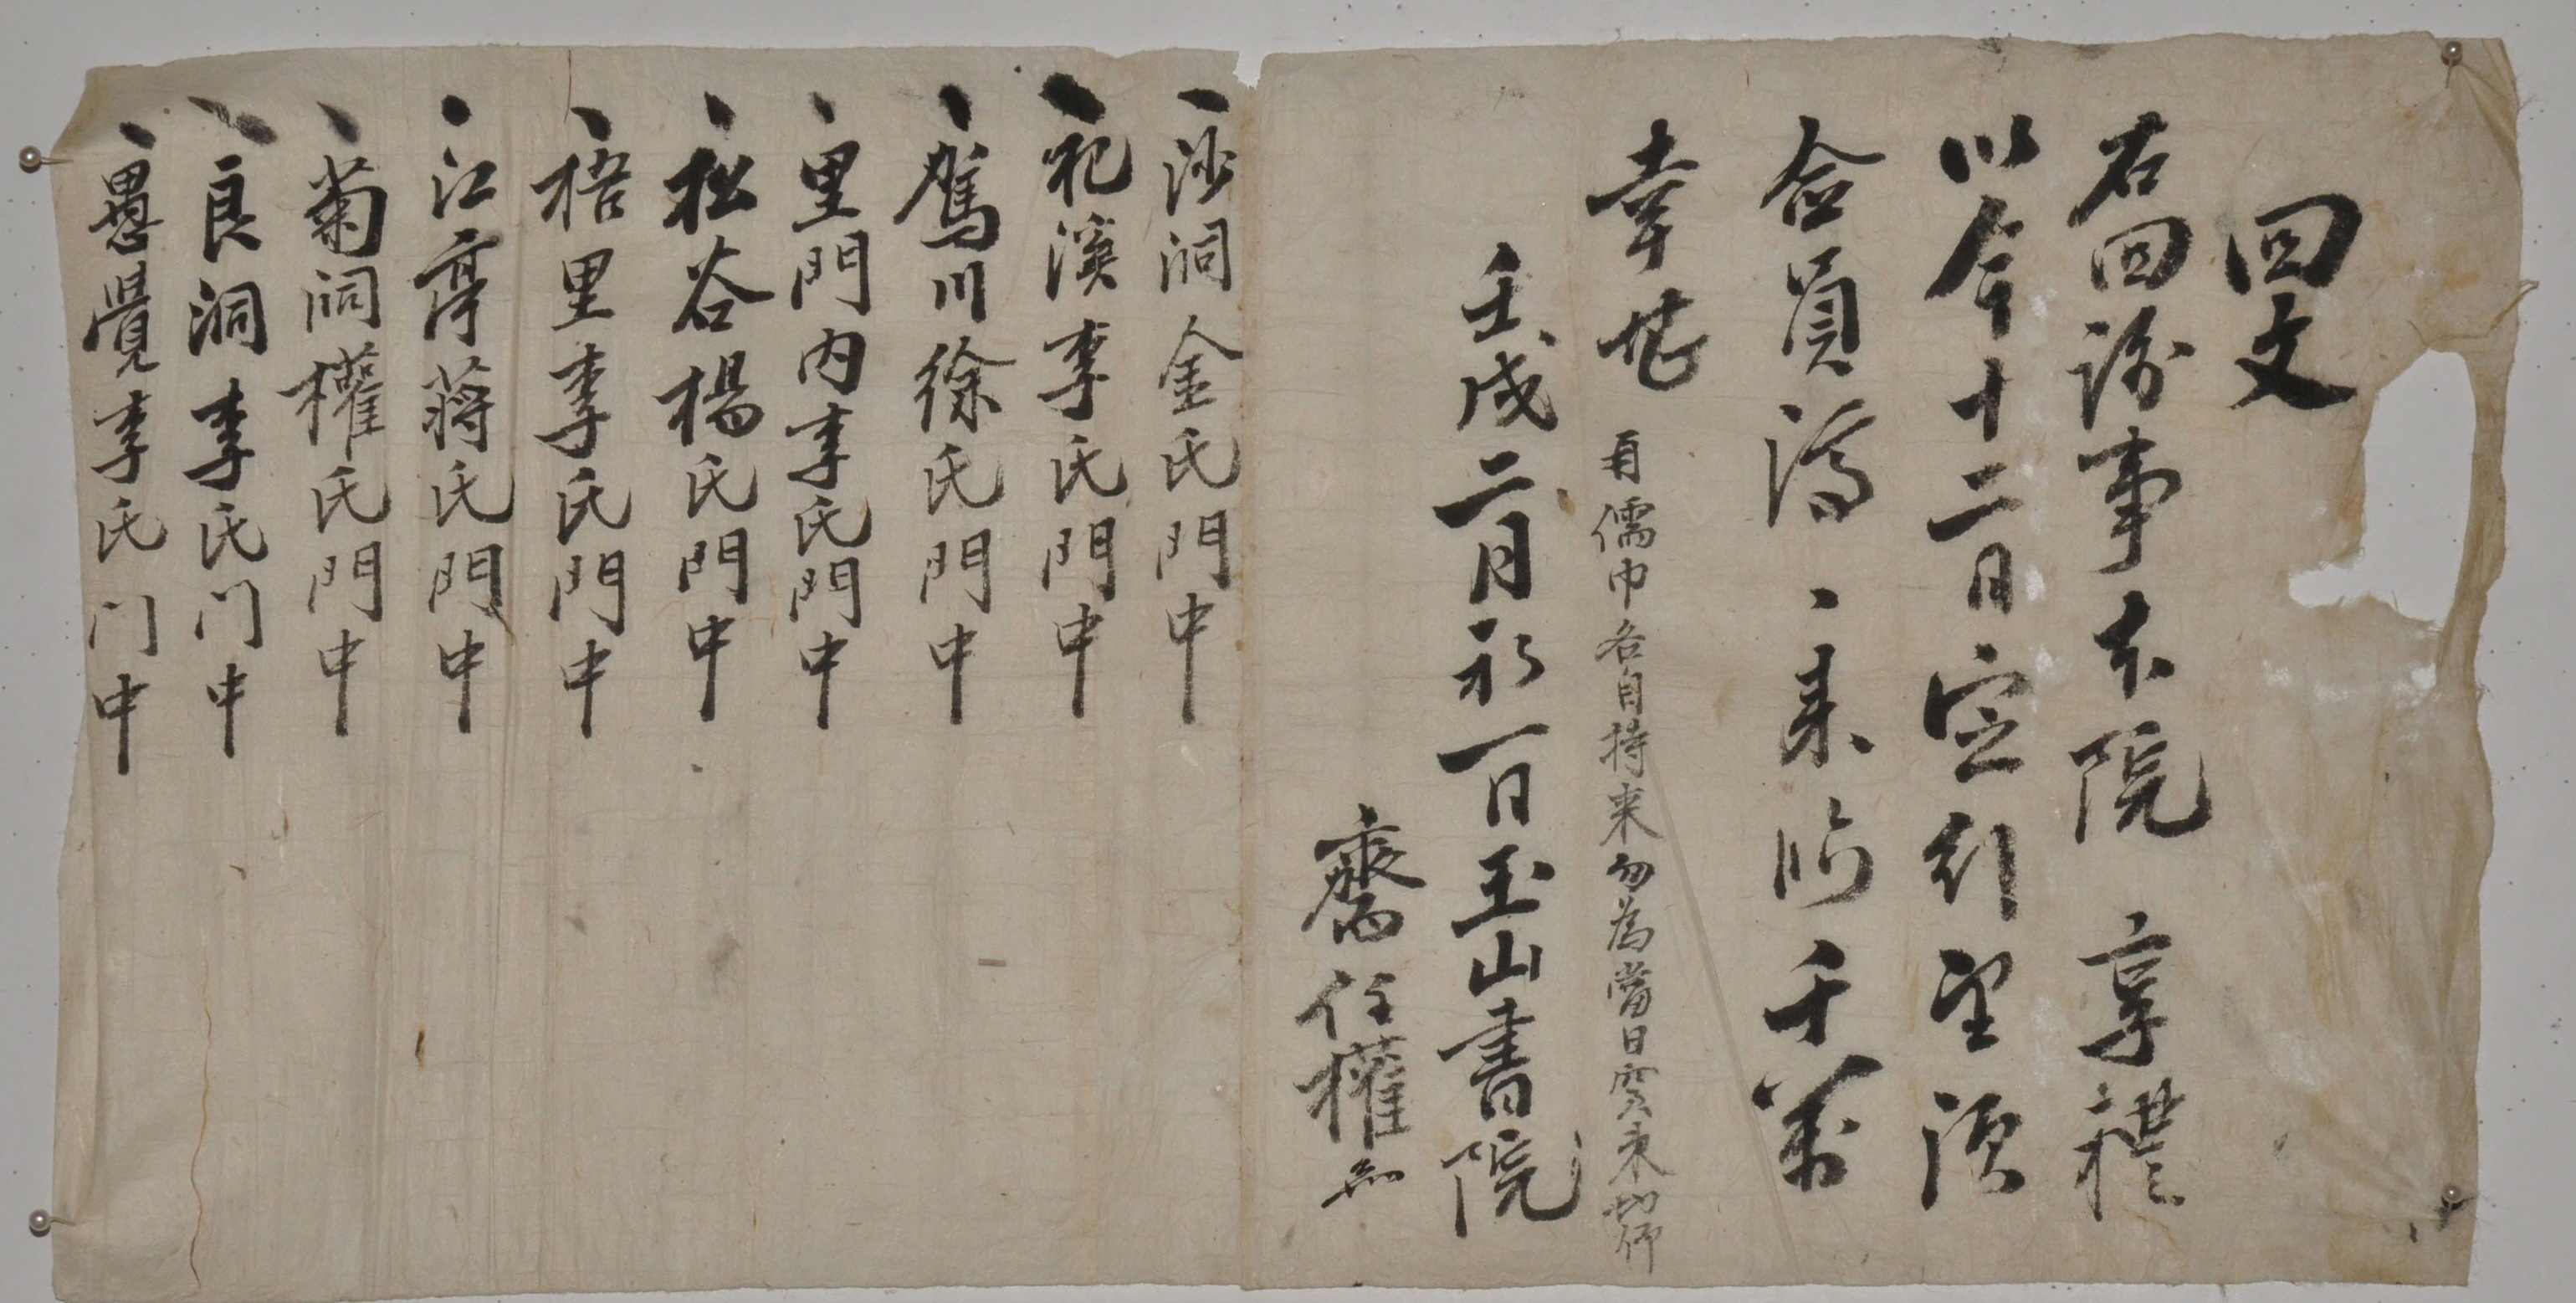 回文
右回諭事本院 享禮
以今十二日定行望須
僉員濟、來臨千萬
幸甚
再儒巾各自持來勿爲當日窘束切仰
壬戌二月初一日玉山書院
齋任權
沙洞金氏門中
杞溪李氏門中
鴬川徐氏門中
里門內李氏門中
松谷楊氏門中
梧里李氏門中
江亭蔣氏門中
菊洞權氏門中
良洞李氏门中
愚覺李氏门中